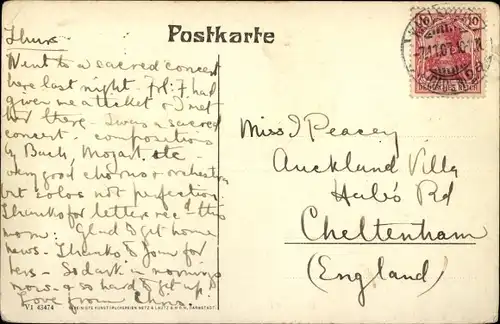 Postkarte
Thurs.
Went to a sacred concert
here last night. Frl. F had
given me a ticket & I met
her there. It was a sacred
concert - compositions
by Bach, Mozart etc -
very good chorus & orchestra
but solos not perfection.
Thanks for letter rec^d this
morn: Glad to get home
news. Thanks to you for
hers - So dark in mornings
now & so hard to get up!
Love from
Miss I Peacey
Auckland Villa
Hale's Rd
Cheltenham
(England)
10 10
DEUTSCHES REICH
VI 43474